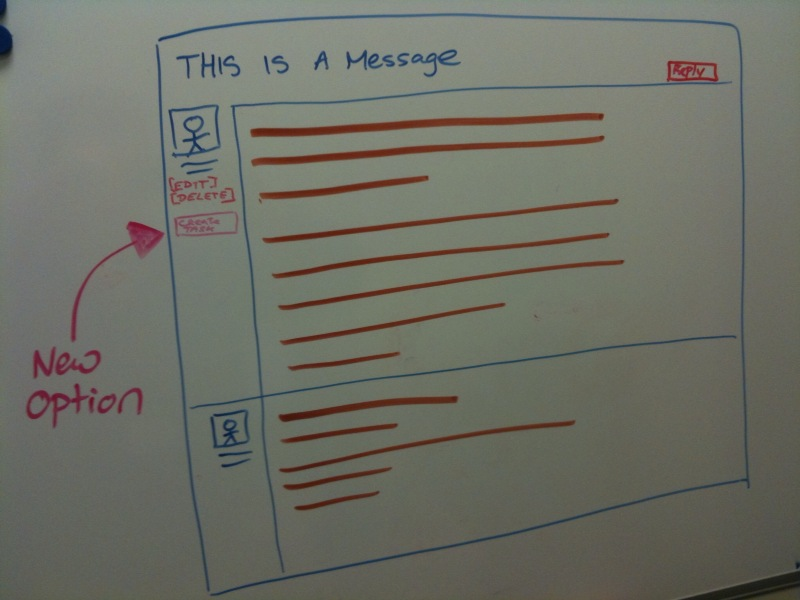 THIS IS A Message
Reply
[EDIT]
[DELETE]
CREATE
TASK
New
option